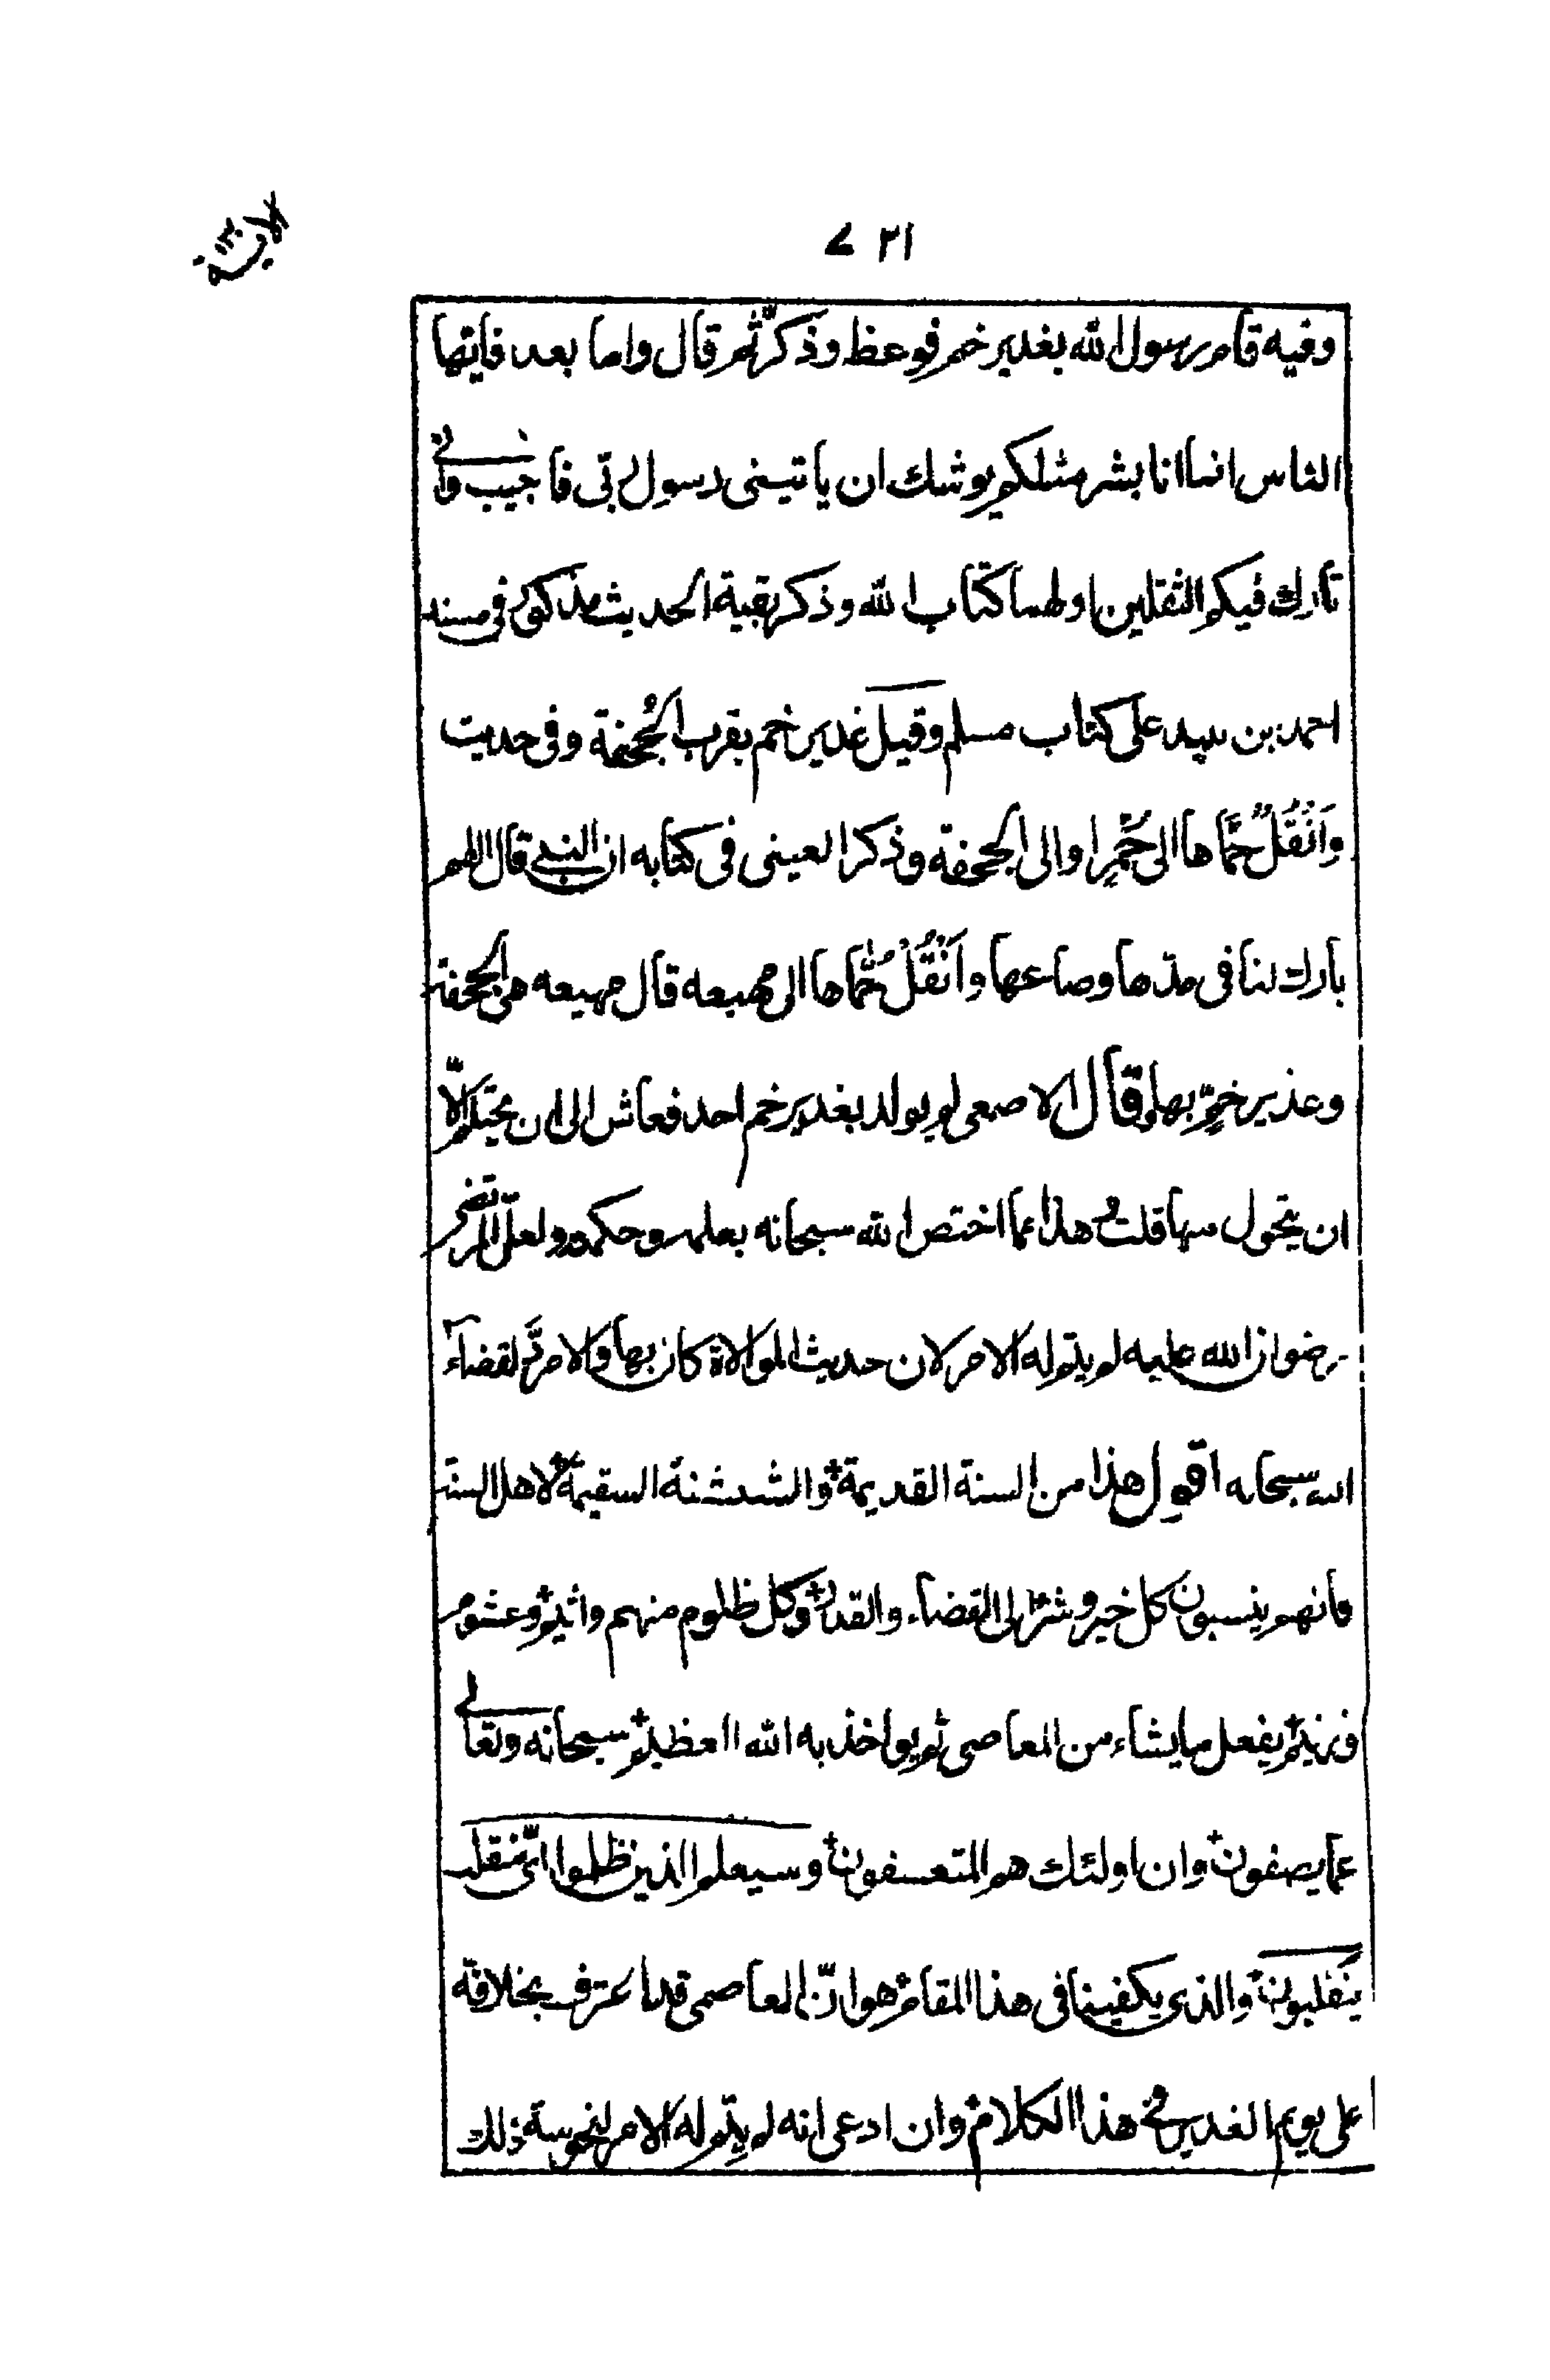 ٢١٧
الاية
وفيه قام رسول الله بغدير خم فوعظ وذكّر ثم قال واما بعد فايها
الناس انما انا بشر مثلكم يوشك ان ياتيني رسول ربّي فاجيب وانّي
تارك فيكم الثقلين اولهما كتاب الله وذكر بقية الحديث مذكور في مسند
احمد بن على كتاب مسلم وقيل غدير خم بقرب الجُحفة وفي حديث
وَاَنْقُلْ حُمَّاها الى خُمٍّ او الى الجحفة وذكر العينى فى كتابه ان النبي قال اللهم
بارك لنا فى مدّها وصاعها وَاَنْقُلْ حُمَّاها الى مهيعه قال مهيعه هي الجحفة
وغدير خمّ بها وقال الاصمعي لم يولد بغدير خم احد فعاش الى ان يحتلم الّا
ان يتحول منها قلت هذا مما اختص الله سبحانه بعلمه وحكمه ولعلّ المرتضى
رضوان الله عليه لم يتم له الامر لان حديث الموالاة كان بها والامر لقضاء
الله سبحانه اقول هذا من السنة القديمة والشنشنة السقيمة لاهل السنة
فانهم ينسبون كل خير وشرّ الى القضاء والقدر وكل ظلوم منهم واثيم وغشوم
وزنيم يفعل ما يشاء من المعاصى ثم يواخذ به الله العظيم سبحانه وتعالى
عما يصفون وان اولئك هم المتعسفون وسيعلم الذين ظلموا ايّ منقلب
ينقلبون والذى يكفينا فى هذا المقام هو انّ العاصمى قد اعترف بخلافة
على يوم الغدير في هذا الكلام وان ادعى انه لم يتم له الامر لنحوسة ذلك